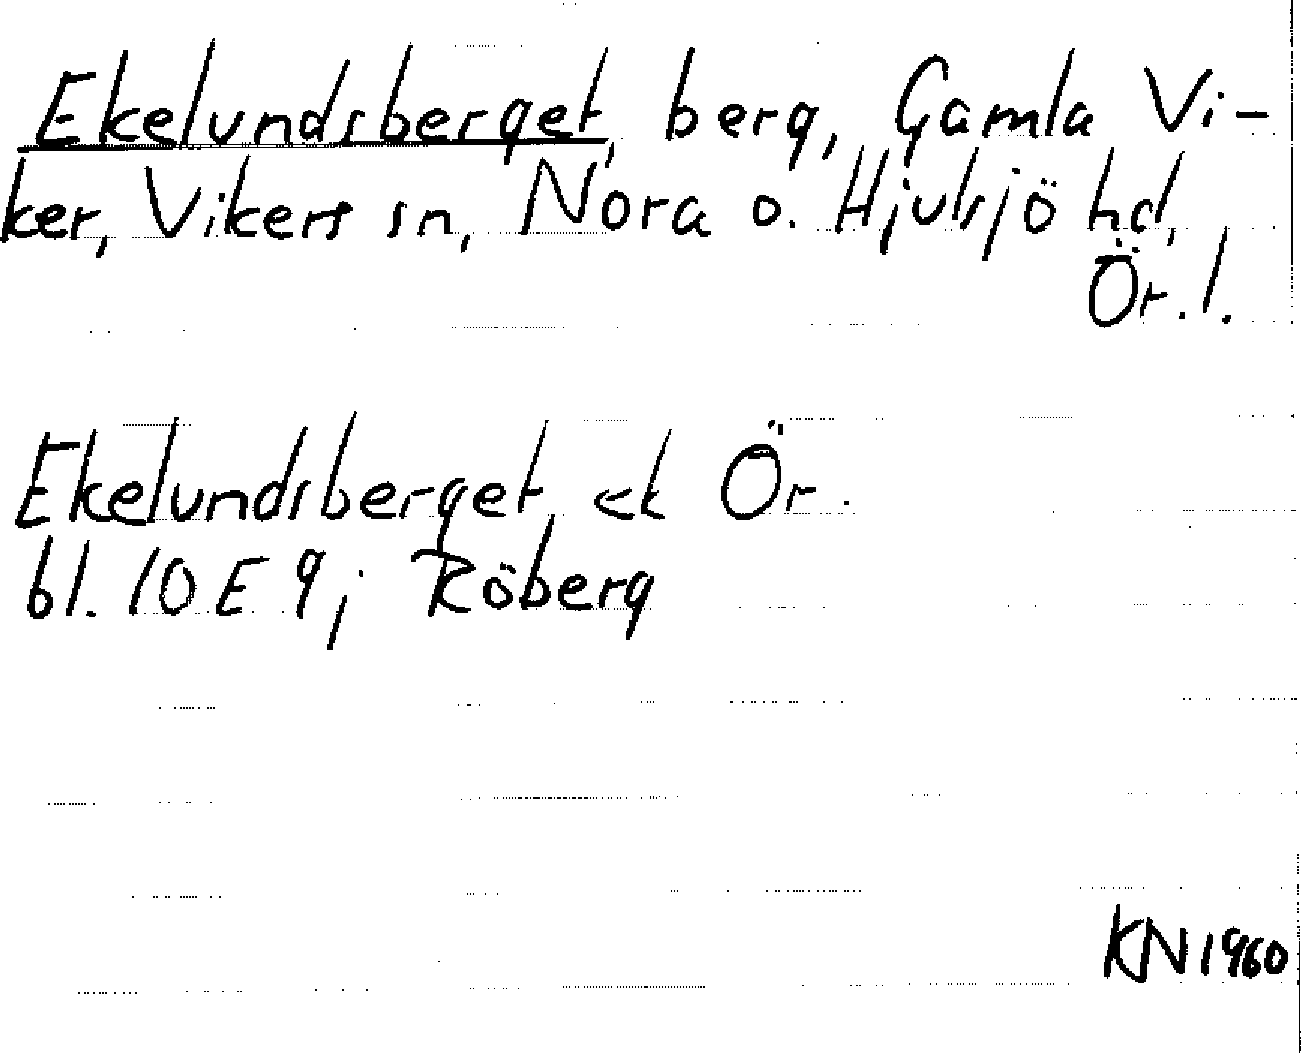 Ekelundsberget, berg, Gamla Vi-
ker, Vikers sn, Nora o. Hjulsjö hd,
Ör. l.
Ekelundsberget ek Ör.
bl. 10 E 9; Röberg
KN 1960